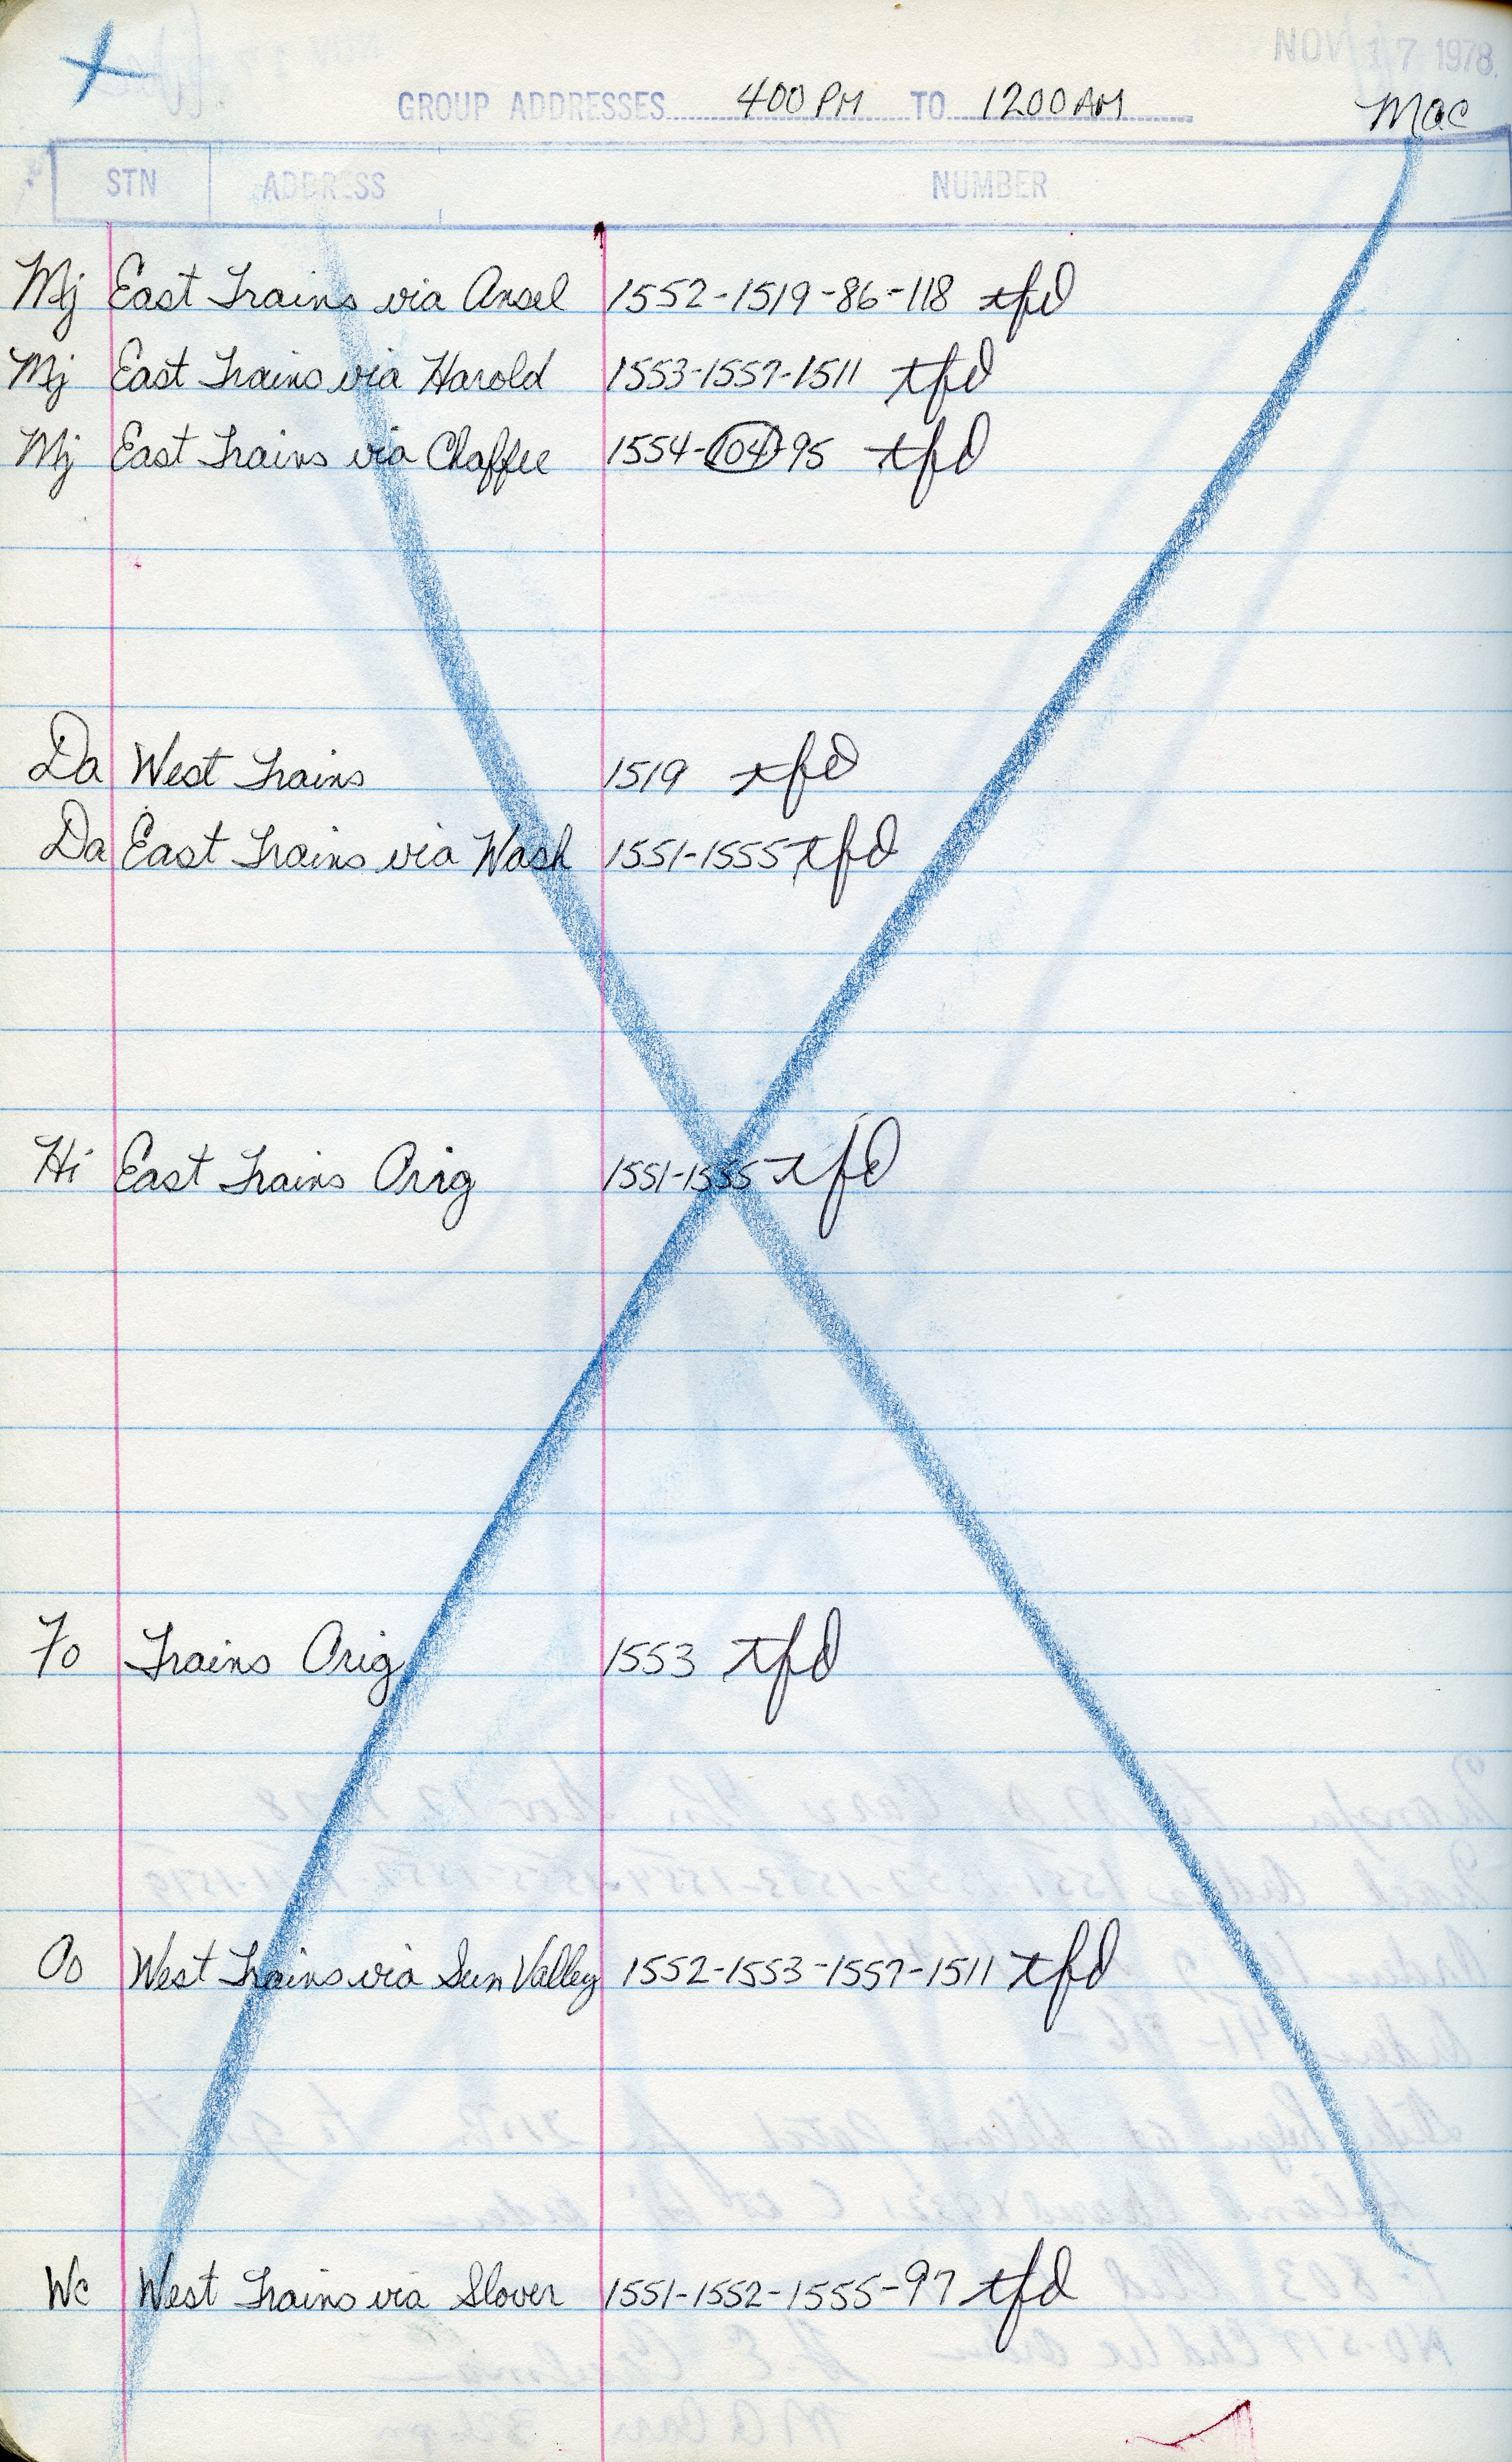 NOV 17 1978
GROUP ADDRESSES 400 PM TO 1200 AM Mac
STN ADDRESS NUMBER
Mj East Trains via Ansel 1552-1519-86-118 tfd
Mj East Trains via Harold 1553-1557-1511 tfd
Mj East Trains via Chaffee 1554-104-95 tfd
Da West Trains 1519 tfd
Da East Trains via Wash 1551-1555 tfd
Hi East Trains Orig 1551-1555 tfd
Fo Trains Orig 1553 tfd
Oo West Trains via Sun Valley 1552-1553-1557-1511 tfd
Wc West Trains via Slover 1551-1552-1555-97 tfd